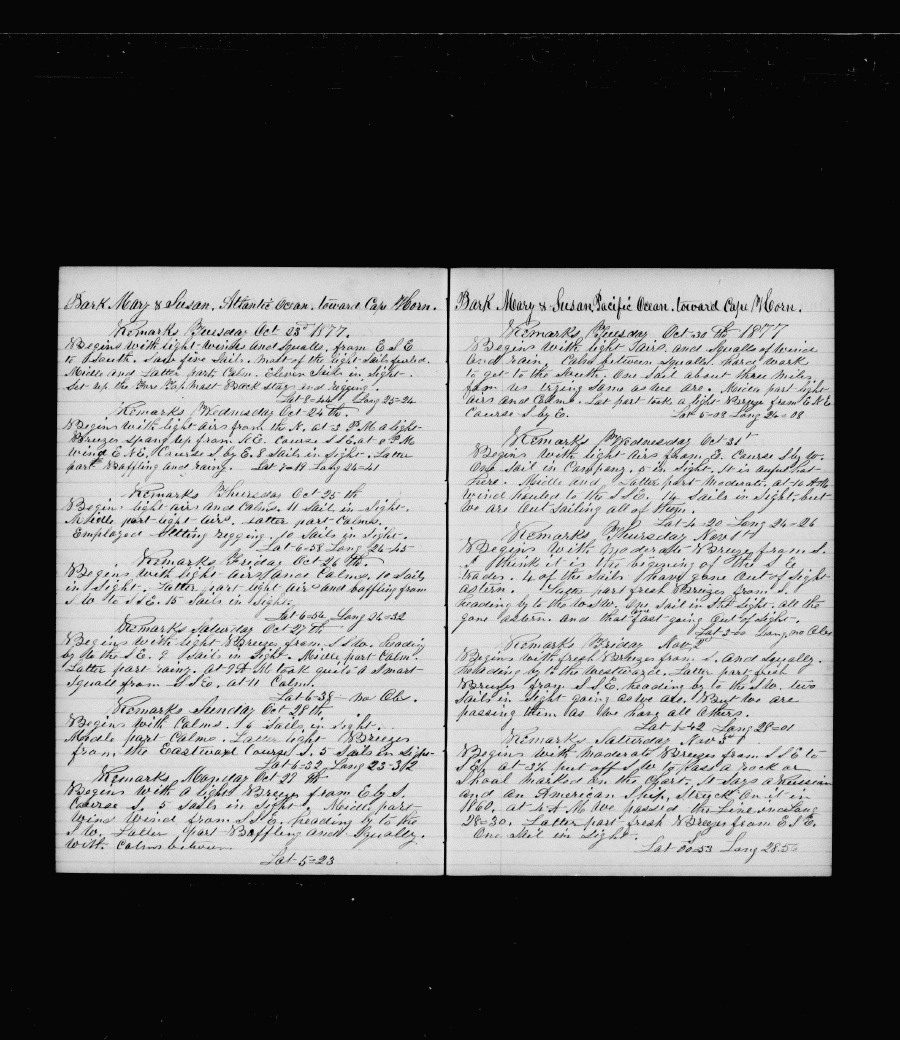 Bark Mary & Susan, Atlantic Ocean, toward Cape Horn.
Remarks Tuesday Oct 23rd 1877.
Begins with light winds and Squalls, from E S E
to South. Saw five Sail. most of the light Sails furled.
Middle and Latter part, Calm. Eleven Sails in Sight.
Set up the Fore Topmast Back stay and rigging.
Lat 8=44 Long 25=24
Remarks Wednesday Oct 24th.
Begins with light airs from the N. at 3 P M a light
Breeze sprang up from N.E. Course S S E. at 8 P M
wind E.N.E. Course S by E. 8 Sails in Sight. Latter
part Baffling and rainy. Lat 7=18 Long 24=41
Remarks Thursday Oct 25th
Begins light airs and Calms. 11 Sail in Sight.
Middle part light airs. Latter part Calms.
Employed Setting rigging. 10 Sails in Sight.
Lat 6=58 Long 24=45
Remarks Friday Oct 26th.
Begins with light airs and Calms. 10 Sails
in Sight. Latter part light airs and baffling from
S.W. to S S E. 15 Sails in Sight.
Lat 6=54 Long 24=32
Remarks Saturday Oct 27th
Begins with light Breezes from S.S.W. heading
by to the S.E. 9 Sails in Sight. Middle part Calm.
Latter part rainy. At 9 A M took quite a Smart
Squall from at 11 Calm.
Lat 6=38 - no Obs.
Remarks Sunday Oct 28th
Begins with Calms. 16 Sails in Sight.
Middle part Calms. Latter light Breezes
from the Eastward Course S. 5 Sails in Sight
Lat 6=32 Long 23=32
Remarks Monday Oct 29th
Begins with a light Breeze from E by S.
Course S. 5 Sails in Sight. Middle part
Wind Wind from S.S.E. heading by to the
S.W. Latter part Baffling and Squally.
With Calms between.
Lat 5=23
Bark Mary & Susan, Pacific Ocean, toward Cape Horn.
Remarks Tuesday Oct 30th 1877
Begins with light airs, and Squalls of wind
and rain. Calm between squalls. hard work
to get to the South. One Sail about three miles
from us trying same as we are. Middle part light
airs and Calms. Lat part took a light Breeze from E N E
Course S. by E. Lat 5=08 Long 24=08
Remarks Wednesday Oct 31st
Begins with light airs from E. Course S by W.
One Sail in Company. 5 in Sight. It is awful hot
here. Middle and Latter part Moderate. at 10 A M
wind hauled to the S.S.E. 14 Sails in Sight, but
We are out sailing all of them.
Lat 4=20 Long 24=26
Remarks Thursday Nov 1st
Begins with Moderate Breezes from S.
I think it is the begining of the S E
trades. 4 of the Sails have gone out of Sight
astern. Latter part fresh Breezes from S.
heading by to the W.S.W. One Sail in Sight. all the
gone astern. and that fast going out of Sight.
Lat 3=00 Long no Obs
Remarks Friday Nov 2nd
Begins with fresh Breezes from S. and Squally.
heading by to the westward. Latter part fresh
Breezes from S.S.E. heading by to the S.W. two
Sails in Sight going as we are. But we are
passing them as we have all others.
Lat 1=42 Long 28=01
Remarks Saturday Nov 3rd
Begins with moderate Breezes from S S E to
at 3½ put off S.W. to pass a rock or
Shoal marked on the Chart. It says a Russian
and an American Ship, Struck on it in
1860. at 4 A M We passed the Line in Long
28=30. Latter part fresh Breezes from E S E.
One Sail in Sight.
Lat 00=53 Long 28.5